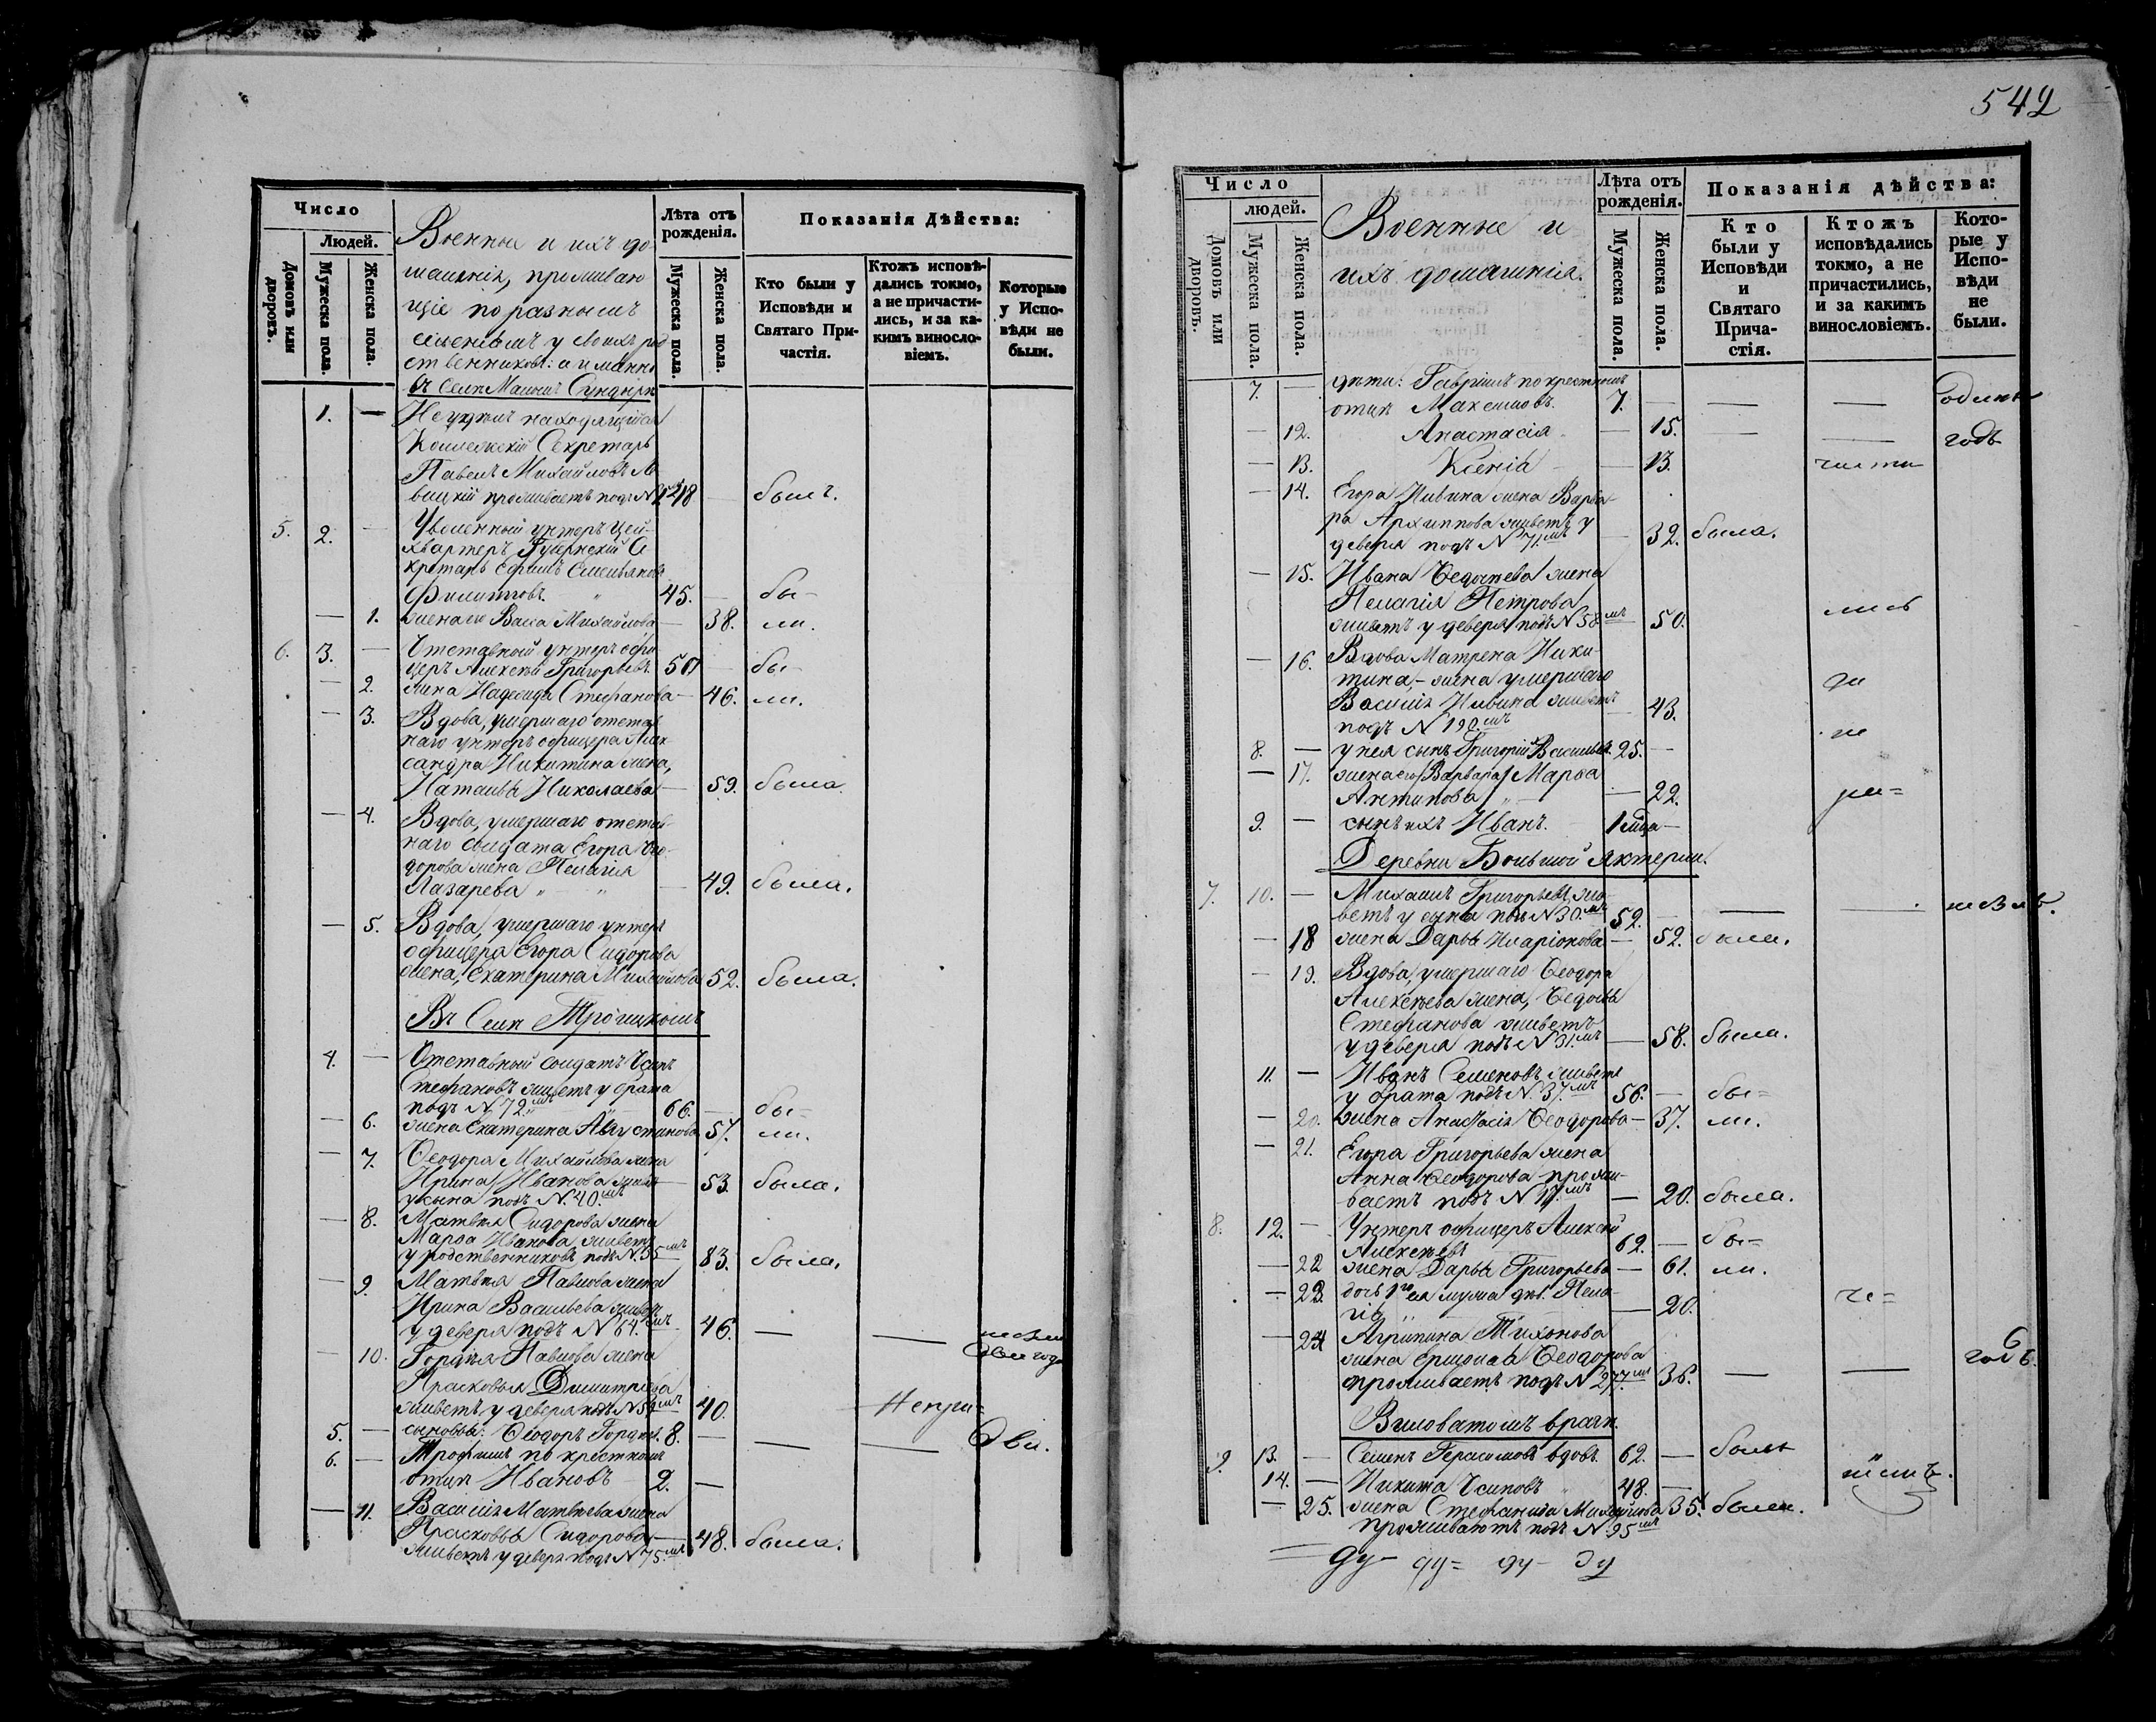 542
Число
Людей.
Домовъ или дворовъ.
Мужеска пола.
Женска пола.
Военныя и ихъ до-
машнія, проживаю
щіе по разнымъ
селеніямъ у своихъ род
ственниковъ: а именно
въ селѣ Маломъ Сундырѣ
Лѣта отъ рожденія.
Мужеска пола.
Женска пола.
Показанія Дѣйства:
Кто были у Исповѣди и Святаго При-частія.
Ктожъ исповѣ-дались токмо, а не причасти-лись, и за ка-кимъ виносло-віемъ.
Которые у Испо-вѣди не были.
1. —
Коллежскій Секретарь
Павелъ Михайловъ
вицкій проживаетъ подъ № 48 — былъ.
5. 2. — Уволенный унтеръ цей-
хвартеръ, Губернскій Се
кретарь Ефимъ Емельяновъ
Филиповъ. 45. — бы-
— 1. жена его Васса Михайлова — 38. ли.
6. 3. — Отставный унтеръ офи
церъ Алексѣй Григорьевъ 50 — бы-
— 2. жена Надежда Стефанова — 46. ли.
— 3. Вдова, умершаго отстав
наго унтеръ офицера Алек-
сандра Никитина жена,
Наталья Николаева — 59. была.
— 4. Вдова, умершаго отстав-
наго солдата Егора Ѳео-
дорова жена Пелагія
Лазарева — 49. была.
— 5. Вдова, умершаго унтеръ
офицера Егора Сидорова
жена, Екатерина Михайлова 52. была.
Въ Селѣ Троицкомъ
4. — Отставный солдатъ Осипъ
Стефановъ живетъ у брата
подъ № 72.мъ 66. — бы-
— 6. жена Екатерина Августинова 57. ли.
— 7. Ѳеодора Михайлова жена
Ирина Иванова живетъ
у сына подъ №. 40.мъ — 53. была.
— 8. Матвѣя Сидорова жена
Марѳа Иванова, живетъ
у родственниковъ подъ №. 35мъ 83. была.
— 9. Матвѣя Павлова жена
Ирина Васильева живетъ
у деверя подъ № 64.мъ 46. — —
— 10. Гордѣя Павлова жена два года
Прасковья Димитріева
живетъ у деверя подъ № 59мъ 40. Непри-
5. — сыновья: Ѳеодоръ Гордѣевъ. 8. — — — Два.
6. — Трофимъ по крестномъ
отцѣ Ивановъ 2. —
— 11. Василія Матвѣева жена
Прасковья Сидорова — 48. была.
живетъ у деверя подъ № 75.мъ
Число
людей.
Домовъ или дворовъ.
Мужеска пола.
Женска пола.
Военные и
ихъ домашнія.
Лѣта отъ рожденія.
Мужеска пола.
Женска пола.
Показанія дѣйства:
Кто были у Исповѣди и Святаго Прича-стія.
Ктожъ исповѣдались токмо, а не причастились, и за какимъ винословіемъ.
Кото-рые у Испо-вѣди не были.
7. — дѣти: Гавріилъ по крестномъ
отцѣ Максимовъ. 7. — — — одинъ
— 12. Анастасія — 15. — — годъ
— 13. Ксенія — 13. части
— 14. Егора Ильина жена Варва-
ра Архиппова живетъ у
деверя подъ № 71.мъ — 32. была.
— 15. Ивана Ѳедотьева жена
Пелагія Петрова
живетъ у деверя подъ № 58мъ 50. лись
— 16. Вдова Матрена Ники-
тина, — жена умершаго
Василія Ильина живетъ
подъ № 190.мъ — 43.
8. — у нея сынъ Григорій Васильев. 25. —
— 17. жена его /Варвара/ Марѳа
Антипова — 22.
9. — сынъ ихъ Иванъ. 1 мѣся —
Деревни Большой Яктерли.
7. 10. — Михаилъ Григорьевъ, жи-
ветъ у сына подъ № 30.мъ 52. — — —
— 18 жена Дарья Иларіонова — 52. была.
— 19. Вдова, умершаго Ѳеодора
Алексѣева жена, Ѳедосья
Стефанова живетъ
у деверя подъ № 31.мъ — 58. была.
11. — Иванъ Семеновъ живетъ
у брата подъ №. 37.мъ 56. — бы-
— 20. жена Анастасія Ѳеодорова — 37. ли.
— 21. Егора Григорьева жена
Анна Ѳеодорова прожи-
ваетъ подъ № 17.мъ — 20. была.
8. 12. — Унтеръ офицеръ Алексѣй
Алексѣевъ 62. — бы-
— 22 жена Дарья Григорьева — 61. ли.
— 23. дочь 1го ея мужа дѣв. Пела-
гія — 20.
— 24 Агрипина Тихонова
жена Ермолая Ѳеодорова
проживаетъ подъ № 277.мъ 36. — —
Виловатомъ врагѣ.
9. 13. — Семенъ Герасимовъ вдовъ. 62. — былъ
14. — Никита Осиповъ 48. —
— 25. жена Стефанида Михайлова 35. были.
проживаютъ подъ №. 95мъ